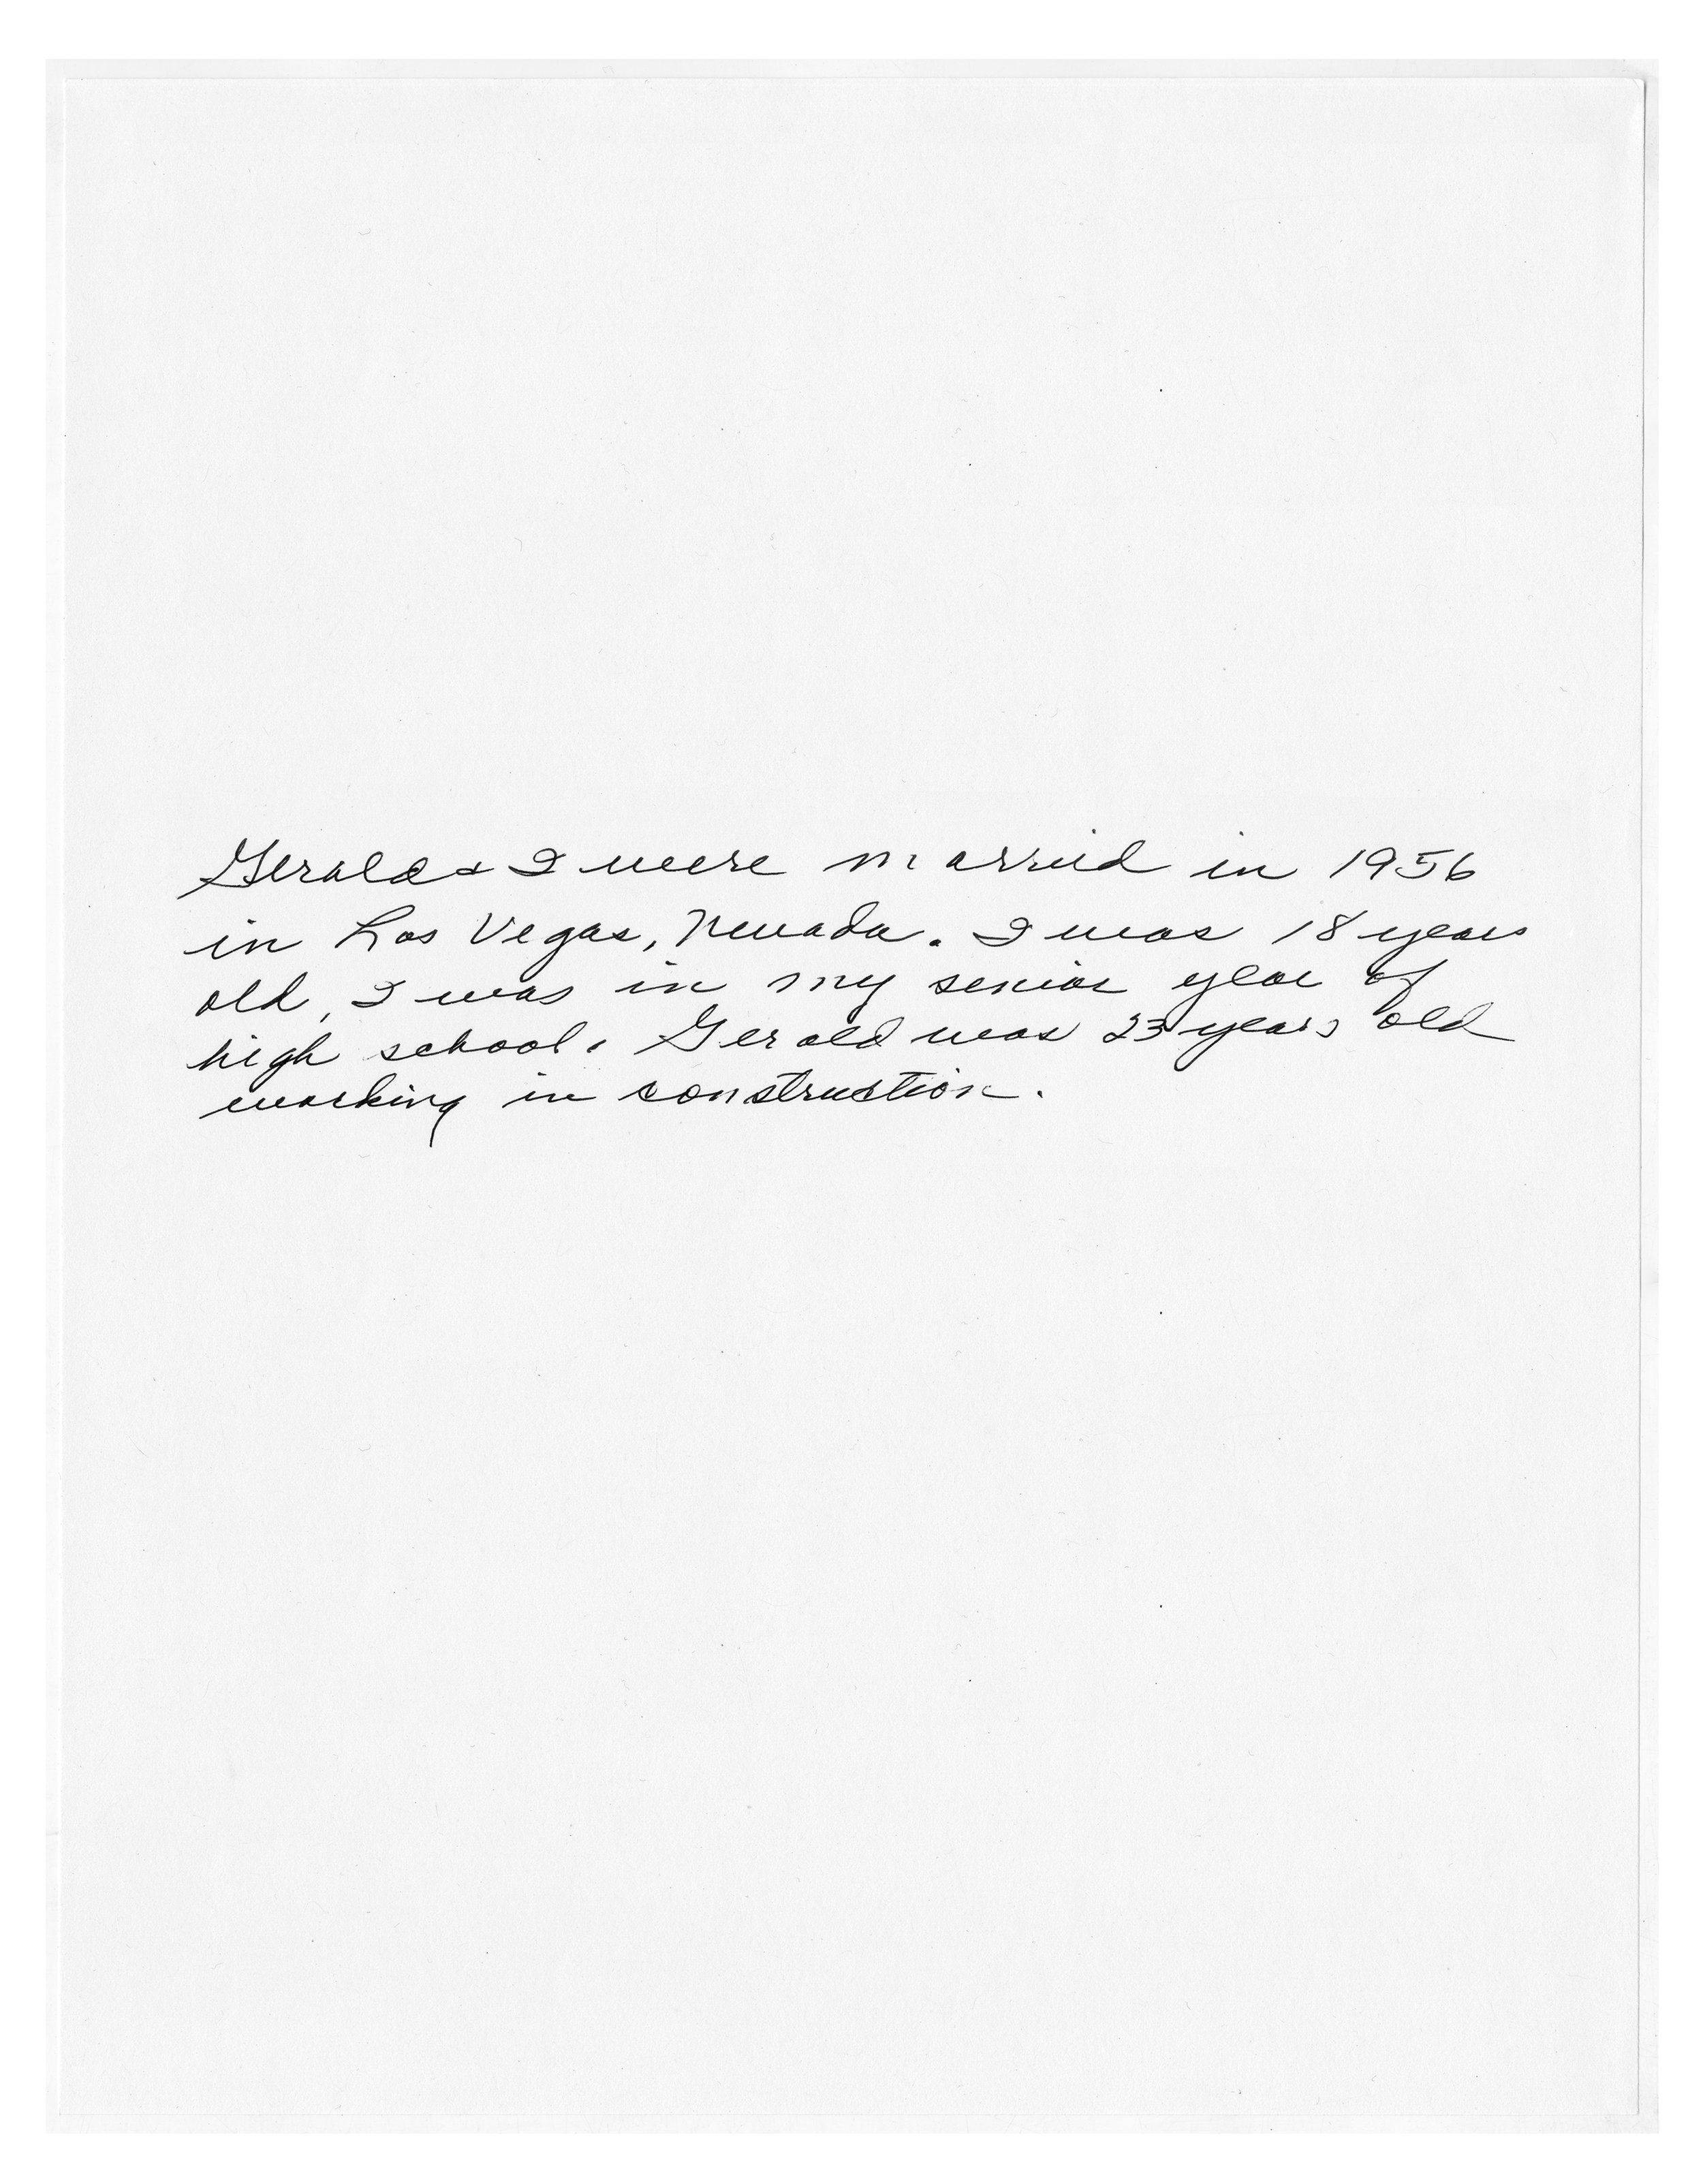 Gerald & I were married in 1956
in Las Vegas, Nevada. I was 18 years
old, I was in my senior year of
high school. Gerald was 23 years old
working in construction.